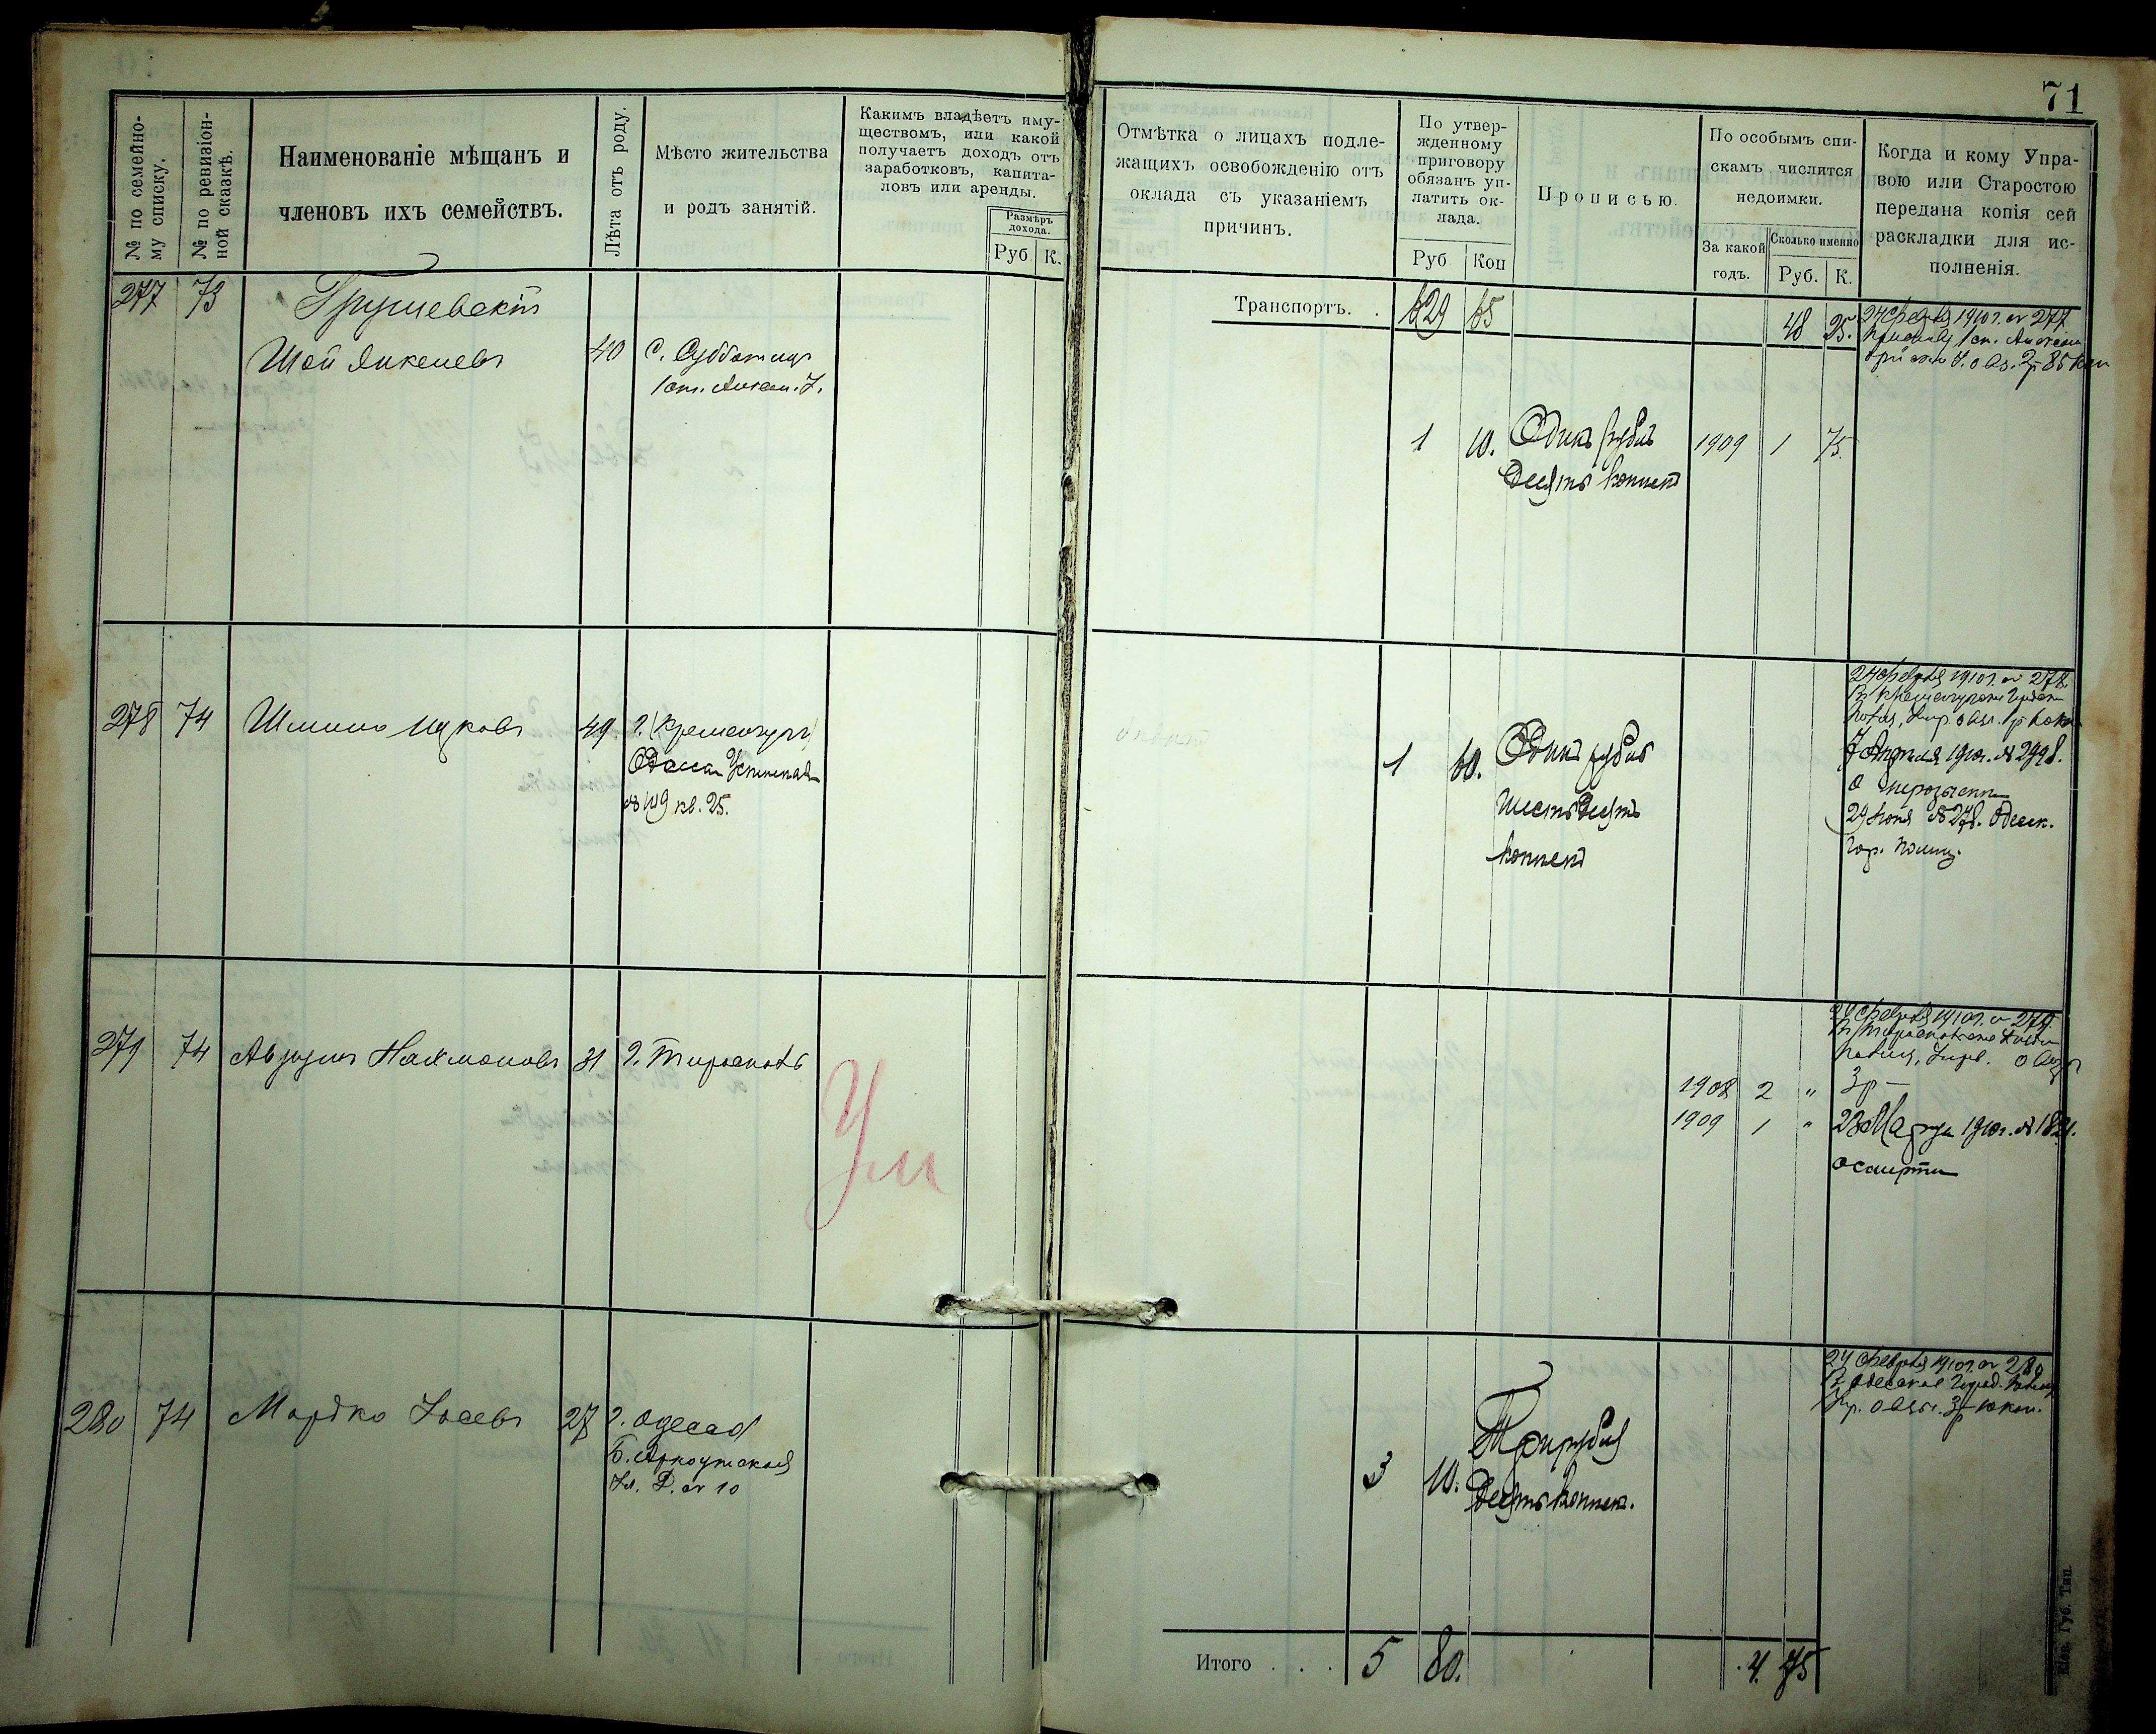 71
№ по семейно-
му списку.
№ по ревизіон-
ной сказкѣ.
Наименованіе мѣщанъ и
членовъ ихъ семействъ.
Лѣта отъ роду.
Мѣсто жительства
и родъ занятій.
Какимъ владѣетъ иму-
ществомъ, или какой
получаетъ доходъ отъ
заработковъ, капита-
ловъ или аренды.
Размѣръ
дохода.
Руб. К.
Отмѣтка о лицахъ подле-
жащихъ освобожденію отъ
оклада съ указаніемъ
причинъ.
По утвер-
жденному
приговору
обязанъ уп-
латить ок-
лада.
Руб Коп
Прописью.
По особымъ спи-
скамъ числится
недоимки.
За какой
годъ.
Сколько именно
Руб. К.
Когда и кому Упра-
вою или Старостою
передана копія сей
раскладки для ис-
полненія.
277 73 Грушевскій
Шая Янкелевъ 40 с. Субботцы
Транспортъ. . 629 65 48 25.
24 Февраля 1910 г. № 277
2 р 85 коп
1 10. Одинъ рубль
десять копѣекъ
1909 1 75.
278 74 Шлиома Ицковъ 49 г. Кременчугъ
Одесса Успенская
№ 119 кв. 25.
1 60. Одинъ рубль
шестьдесятъ
копѣекъ
24 Февраля 1910 г. № 278.
7 Апрѣля 1910 г. № 2998.
о перозыскании
29 Іюня № 278. Одесск.
Гор. Полиц.
279 74 Авзумъ Нахмановъ 31 г. Тирасполь
Ум
1908 2 "
1909 1 "
24 Февраля 1910 г. № 279.
3 р –
23 Марта 1910 г. № 1821.
о смерти
280 74 Мордко Іосевъ 27 г. Одесса
Б. Арнаутская
ул. Д. № 10
3 10. Три рубля
десять копѣек.
24 Февраля 1910 г. № 280
В Одесское Город. Полиц.
Упр. о взыс. 3 р 10 коп.
Итого . . . 5 80. 4. 75
Кіев. Губ. Тип.